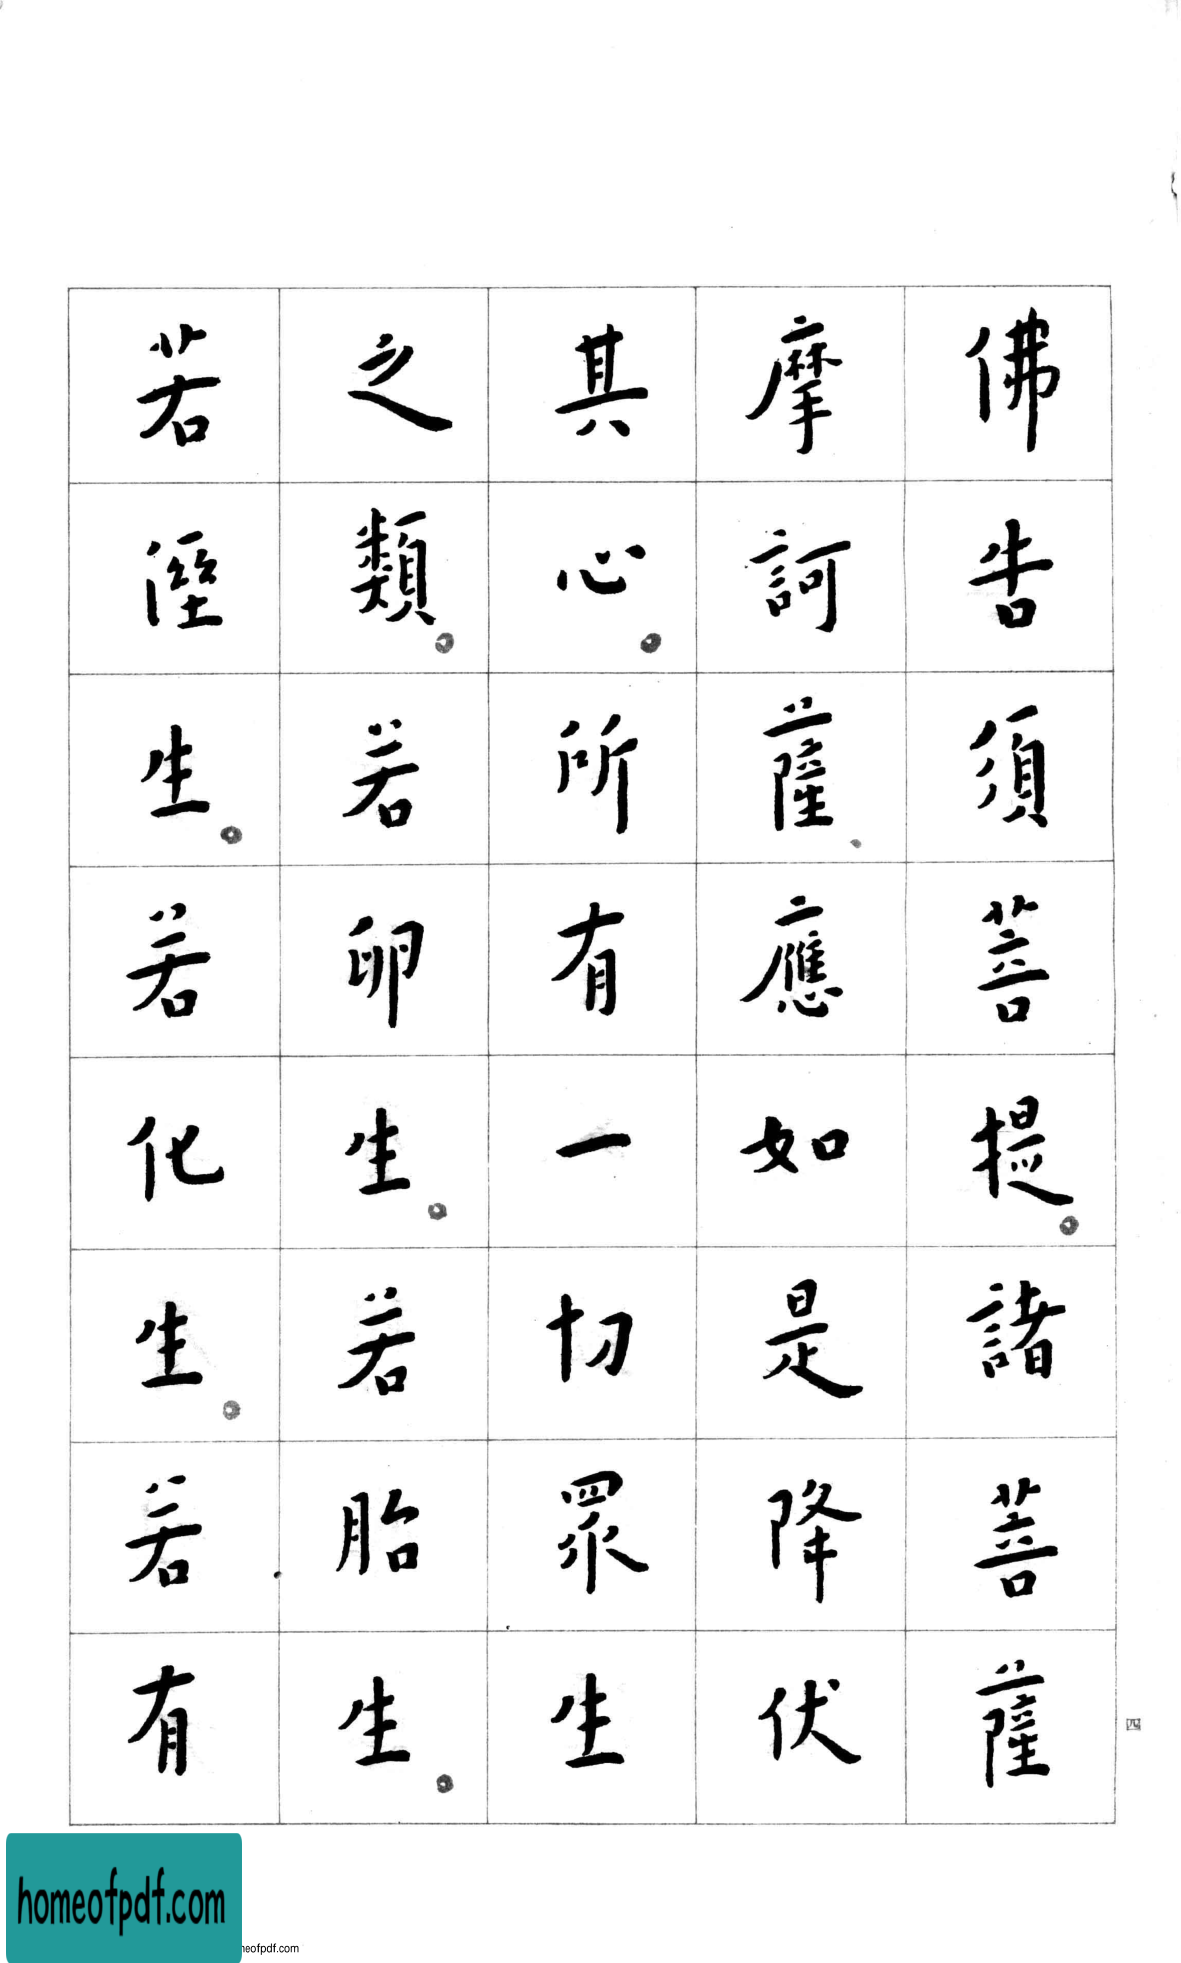 佛告須菩提。諸菩薩
摩訶薩、應如是降伏
其心。所有一切眾生
之類。若卵生。若胎生。
若溼生。若化生。若有
四
homeofpdf.com
neofpdf.com